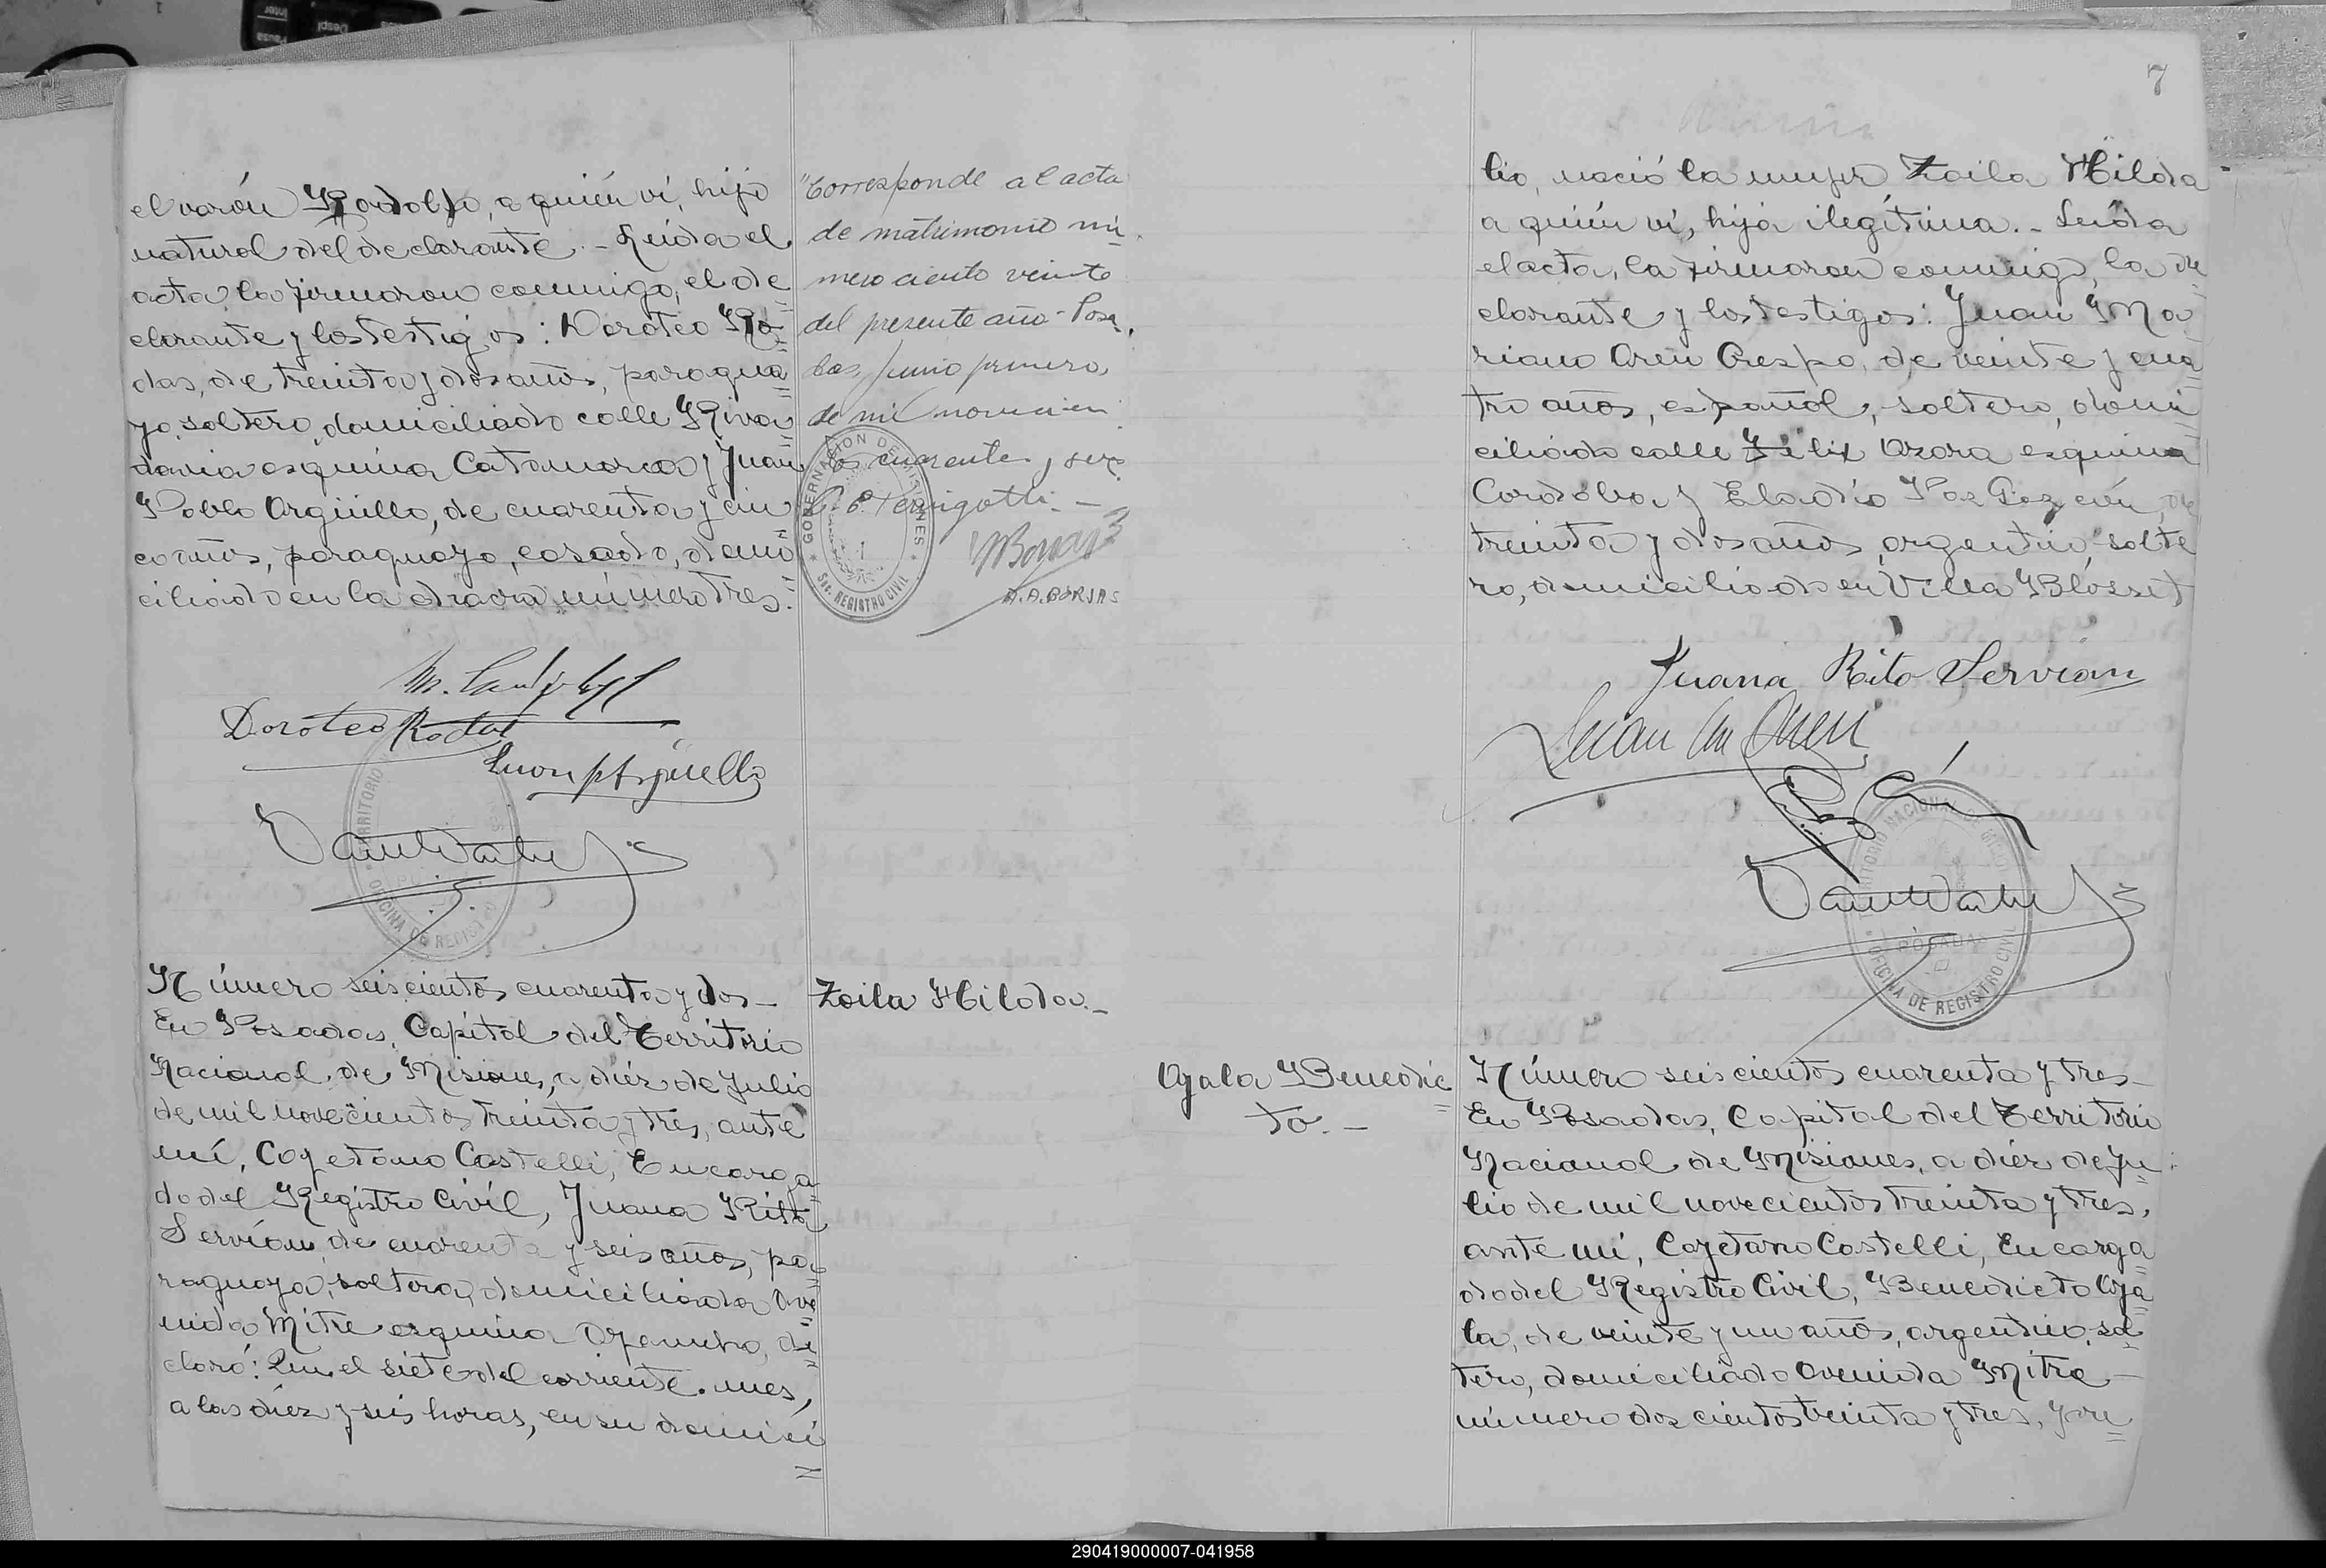 el varón Rodolfo, a quién ví, hijo
natural del declarante.- Leída el
acta la firmaron conmigo, el de
clarante y los testigos: Doroteo Ro
das, de treinta y dos años, paragua
yo, soltero, domiciliado calle Riva
davia esquina Catamarca y Juan
Pablo Argüello, de cuarenta y cin
co años, paraguayo, casado, domi
ciliado en la chacra número tres.
"Corresponde al acta
de matrimonio nú
mero ciento veinte
del presente año - Posa
das, junio primero,
de mil novecien
tos cuarenta y seis
GOBERNACION DE MISIONES
Sec. REGISTRO CIVIL
A. A. BORJAS
Doroteo Rodas
Juan P Argüello
TERRITORIO
OFICINA DE REGISTRO
Número seiscientos cuarenta y dos -
En Posadas, Capital del Territorio
Nacional de Misiones, a diéz de Julio
de mil novecientos treinta y tres, ante
mí, Cayetano Castelli, Encarga
do del Registro Civíl, Juana Rita
Servían de cuarenta y seis años, pa
raguaya, soltera, domiciliada Ave
nida Mitre esquina Ayacucho, de
claró: Que el siete del corriente mes,
a las diéz y seis horas, en su domici
Zoila Hilda.-
7
lio, nació la mujer Zoila Hilda
a quién ví, hija ilegítima.- Leída
el acta, la firmaron conmigo, la de
clarante y los testigos: Juan Ma
riano Oren Crespo, de veinte y cua
tro años, español, soltero, domi
ciliado calle Félix Azara esquina
Cordoba y Eladio Paz de
treinta y dos años, argentino, solte
ro, domiciliado en Villa Blosset
Juana Rita Servian
Juan M Oren
TERRITORIO NACIONAL DE MISIONES
POSADAS
OFICINA DE REGISTRO CIVIL
Ayala Benedic
to.-
Número seiscientos cuarenta y tres -
En Posadas, Capital del Territorio
Nacional de Misiones, a diéz de Ju
lio de mil novecientos treinta y tres,
ante mí, Cayetano Castelli, Encarga
do del Registro Civíl, Benedicto Aya
la, de veinte y un años, argentino, sol
tero, domiciliado Avenida Mitre -
número doscientos treinta y tres,
290419000007-041958